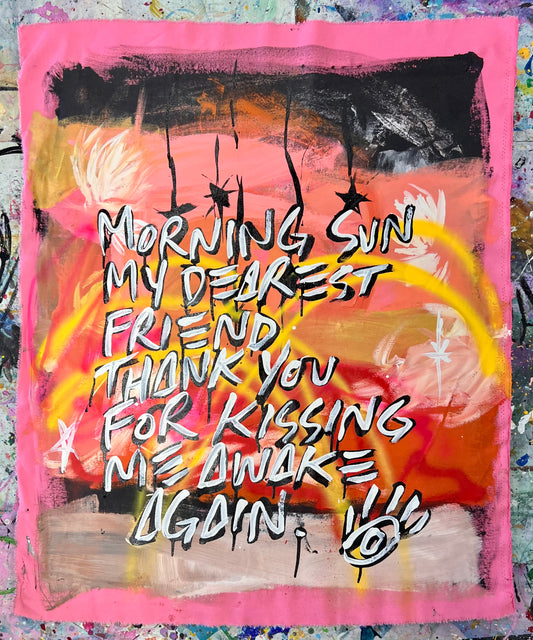 MORNING SUN
MY DEAREST
FRIEND
THANK YOU
FOR KISSING
ME AWAKE
AGAIN.